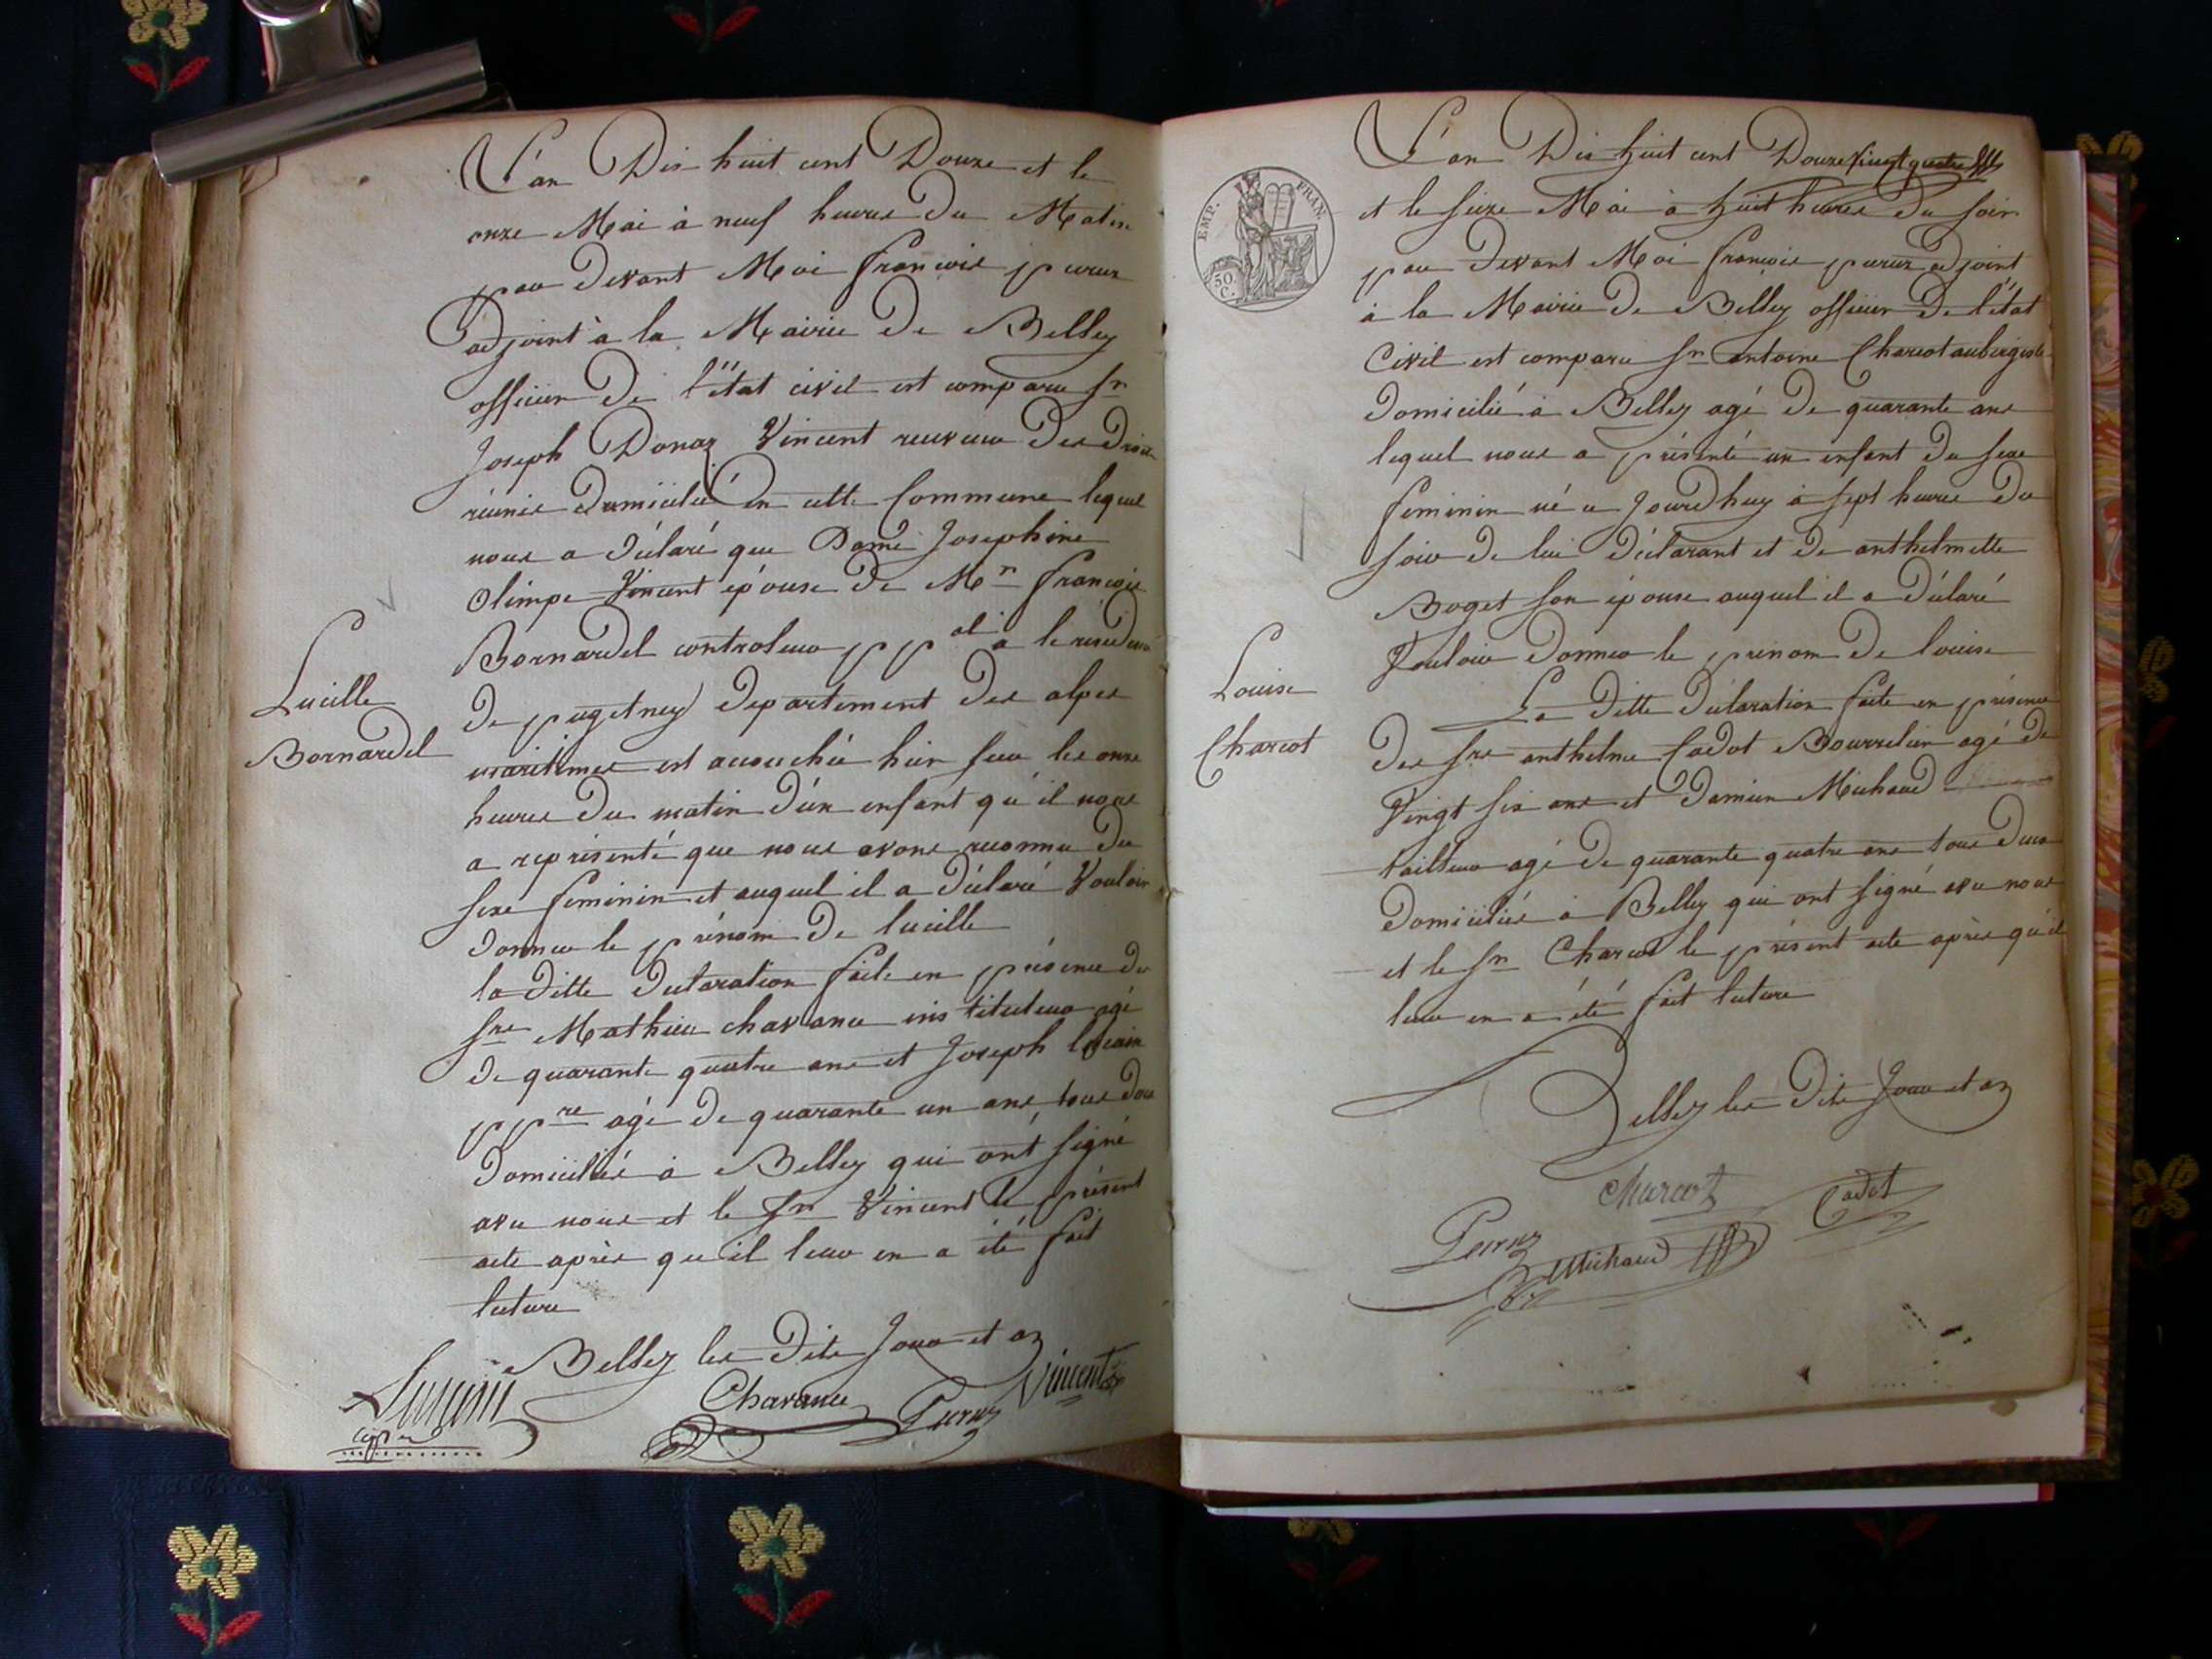 L'an Dix huit cent Douze et le
onze Mai à neuf heures du Matin
par devant Moi françois peruz
adjoint à la Mairie De Belley
officier De l'état civil est comparu Sr
Joseph Donaz Vincent receveur Des Droits
réunis Domicilié en cette Commune lequel
nous a déclaré que Dame Josephine
Olimpe Vincent épouse de Mr françois
Bornardel controleur ppal à la residence
De puget Departement Des alpes
maritimes est accouchée hier sur les onze
heures Du matin d'un enfant qu'il nous
a représenté que nous avons reconnu Du
sexe feminin et auquel il a déclaré Vouloir
donner le prénom De lucille
la ditte Declaration faite en présence des
Srs Mathieu chavance instituteur agé
De quarante quatre ans et Joseph
ppre agé De quarante un ans tous deux
Domiciliés à Belley qui ont signé
avec nous et le Sr Vincent le présent
acte après qu'il leur en a été fait
lecture
Belley les Dits Jour et an
Chavance
Peruz
Vincent
Lucille
Bornardel
EMP. FRAN.
50
C.
L'an Dix huit cent Douze Vingt quatre
et le seize Mai à huit heures du soir
par devant Moi françois peruz adjoint
à la Mairie De Belley officier De l'état
Civil est comparu Sr antoine Charcot aubergiste
Domicilié à Belley agé De quarante ans
lequel nous a présenté un enfant du sexe
feminin né aujourdhuy à sept heures Du
soir de lui déclarant et de anthelmette
Boget son épouse auquel il a déclaré
Vouloir Donner le prenom De louise
La ditte déclaration faite en présence
Des Srs anthelme Cadot Bourrelier agé De
Vingt six ans et Damien Michaud
tailleur agé De quarante quatre ans tous deux
Domiciliés à Belley qui ont signé avec nous
et le Sr Charcot le présent acte après qu'il
leur en a été fait lecture
Belley les Dits Jour et an
Charcot
Cadot
Peruz
Michaud
Louise
Charcot